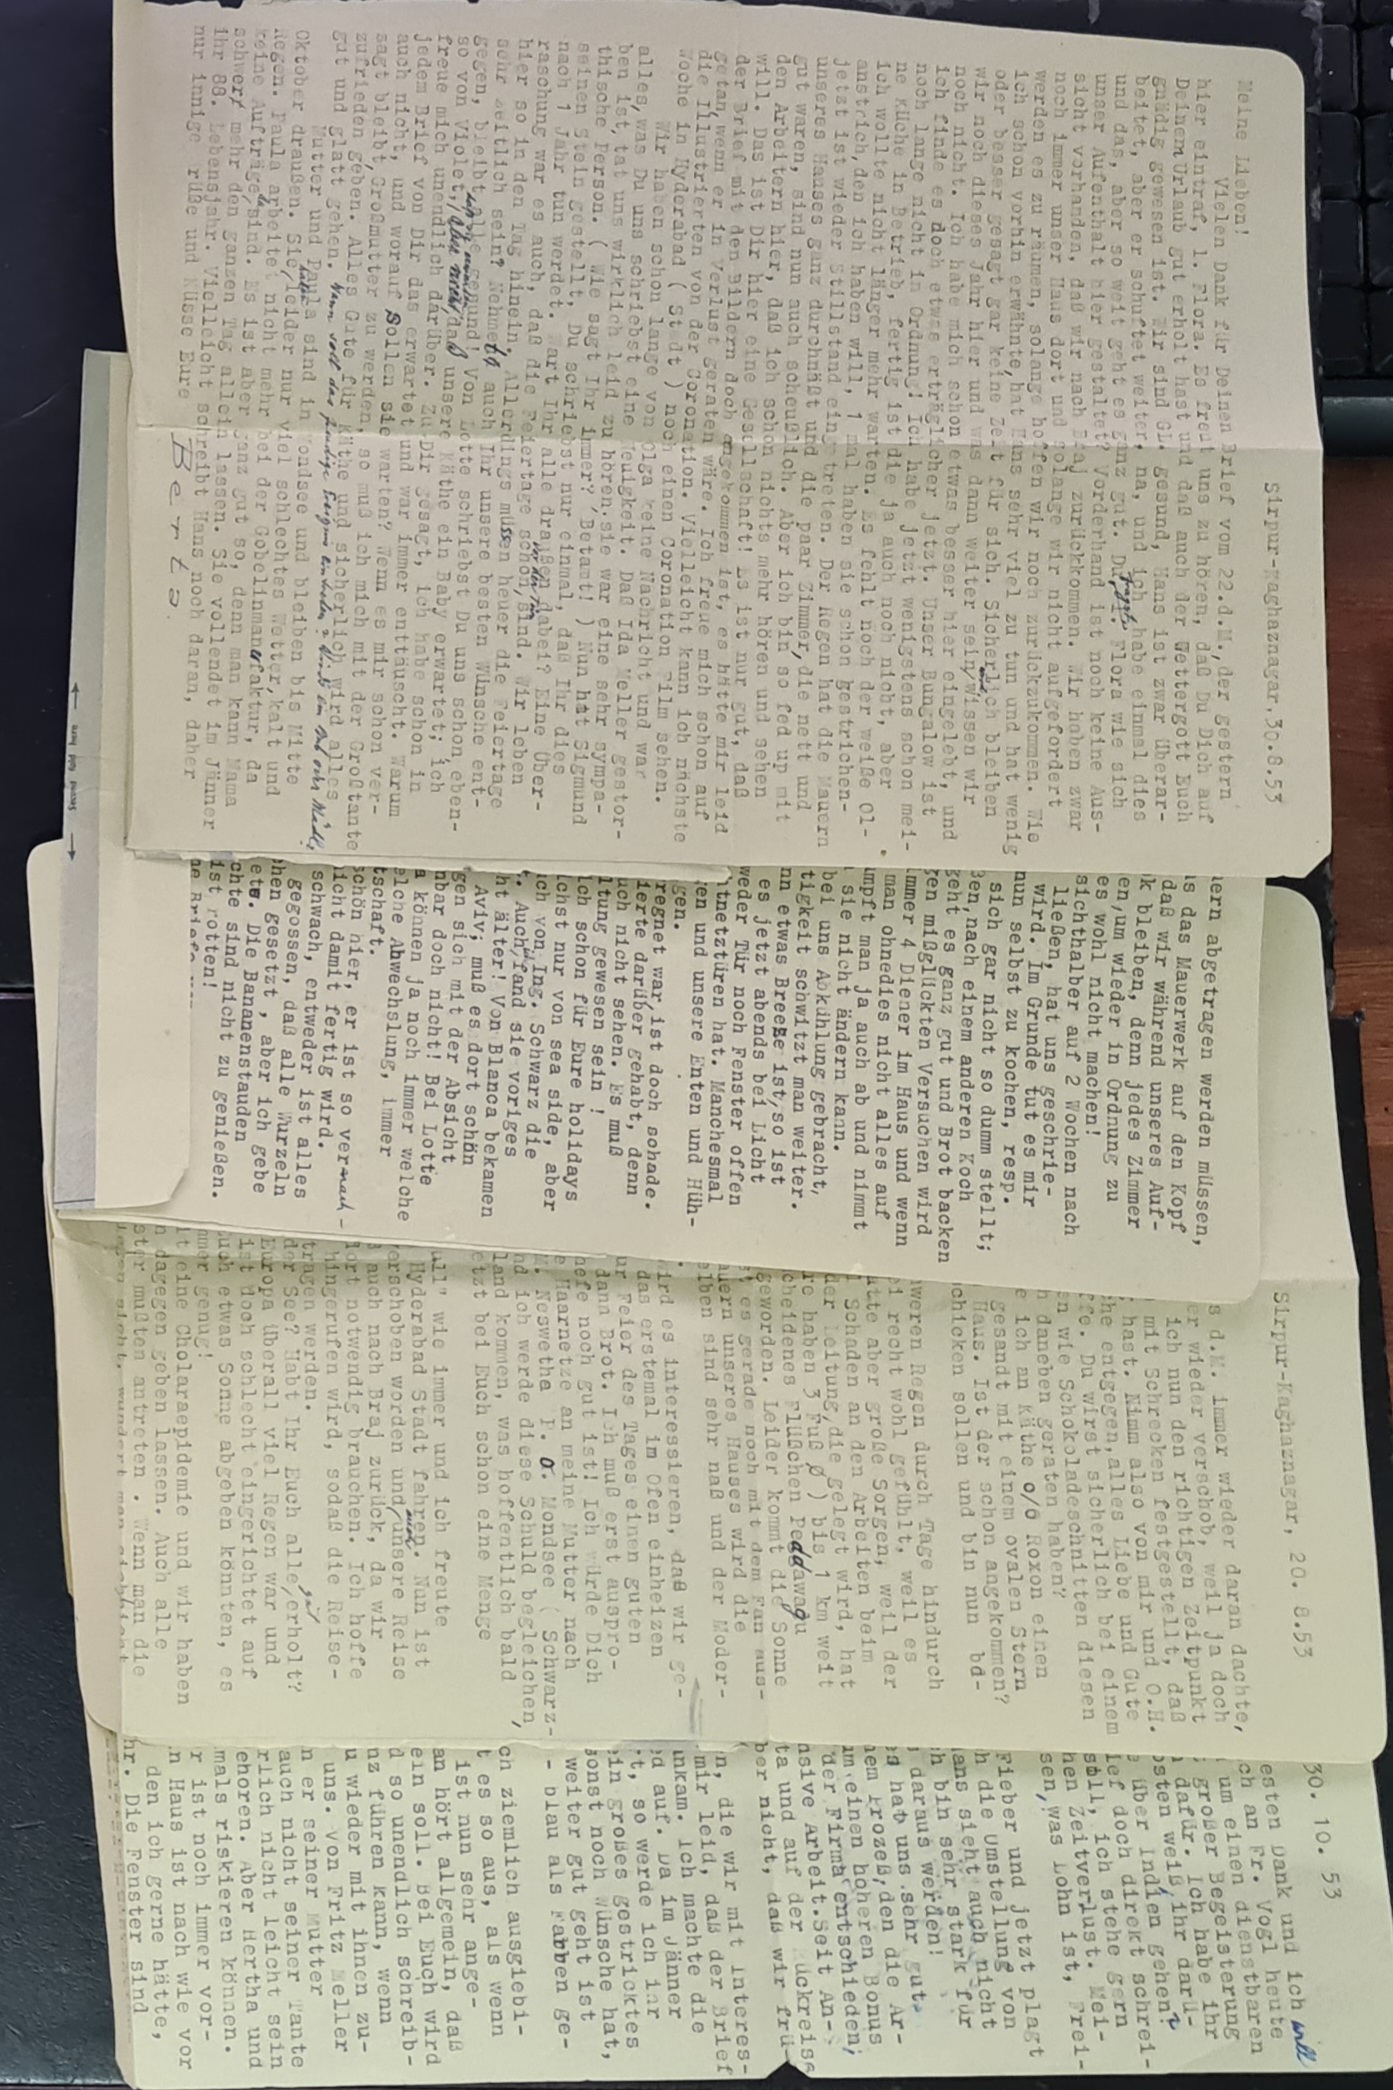 Sirpur-Kaghaznagar,30.8.53
Meine Lieben!
Vielen Dank für Deinen Brief vom 22.d.M., der gestern
hier eintraf, l. Flora. Es freut uns zu hören, daß Du Dich auf
Deinem Urlaub gut erholt hast und daß auch der Wettergott Euch
gnädig gewesen ist. Wir sind GL. gesund, Hans ist zwar überar-
beitet, aber er schuftet weiter, na, und ich habe einmal dies
und das, aber so weit geht es ganz gut. Du fragst, l. Flora wie sich
unser Aufenthalt hier gestaltet? Vorderhand ist noch keine Aus-
sicht vorhanden, daß wir nach Braj zurückkommen. Wir haben zwar
noch immer unser Haus dort und solange wir nicht aufgefordert
werden es zu räumen, solange hoffen wir noch zurückzukommen. Wie
ich schon vorhin erwähnte, hat Hans sehr viel zu tun und hat wenig
oder besser gesagt gar keine Zeit für sich. Sicherlich bleiben
wir noch dieses Jahr hier und was dann weiter sein wird, wissen wir
noch nicht. Ich habe mich schon etwas besser hier eingelebt, und
ich finde es doch etwas erträglicher jetzt. Unser Bungalow ist
noch lange nicht in Ordnung! Ich habe jetzt wenigstens schon mei-
ne Küche in Betrieb, fertig ist die ja auch noch nicht, aber
ich wollte nicht länger mehr warten. Es fehlt noch der weiße Öl-
anstrich, den ich haben will, 1 mal haben sie schon gestrichen-
jetzt ist wieder Stillstand eingetreten. Der Regen hat die Mauern
unseres Hauses ganz durchnäßt und die paar Zimmer, die nett und
gut waren, sind nun auch scheußlich. Aber ich bin so fed up mit
den Arbeitern hier, daß ich schon nichts mehr hören und sehen
will. Das ist Dir hier eine Gesellschaft! Es ist nur gut, daß
der Brief mit den Bildern doch angekommen ist, es hätte mir leid
getan, wenn er in Verlust geraten wäre. Ich freue mich schon auf
die Illustrierten von der Coronation. Vielleicht kann ich nächste
Woche in Hyderabad ( Stadt ) noch einen Coronation Film sehen.
Wir haben schon lange von Olga keine Nachricht und war
alles, was Du uns schriebst eine Neuigkeit. Daß Ida Weller gestor-
ben ist, tat uns wirklich leid zu hören. sie war eine sehr sympa-
thische Person. ( Wie sagt Ihr immer?, Betamt! ) Nun hat Sigmund
seinen Stein gestellt, Du schriebst nur einmal, daß Ihr dies
nach 1 Jahr tun werdet. Wart Ihr alle draußen dabei? Eine Über-
raschung war es auch, daß die Feiertage schon vor der Tür sind. Wir leben
hier so in den Tag hinein. Allerdings müssen heuer die Feiertage
sehr zeitlich sein? Nehmet auch Ihr unsere besten Wünsche ent-
gegen, bleibt uns alle gesund! Von Lotte schriebst Du uns schon, eben-
so von Violet, aber nicht, daß unsere Käthe ein Baby erwartet; ich
freue mich unendlich darüber. Zu Dir gesagt, ich habe schon in
jedem Brief von Dir das erwartet und war immer entäuscht. Warum
auch nicht, und worauf sollen sie warten? Wenn es mir schon ver-
sagt bleibt, Großmutter zu werden, so muß ich mich mit der Großtante
zufrieden geben. Alles Gute für Käthe und sicherlich wird alles
gut und glatt gehen. Wann soll das freudige Ereignis eintreten?
Mutter und Paula sind in Mondsee und bleiben bis Mitte
Oktober draußen. Sie haben leider nur viel schlechtes Wetter, kalt und
Regen. Paula arbeitet nicht mehr bei der Gobelinmanufaktur, da
keine Aufträge da sind. Es ist aber ganz gut so, denn man kann Mama
schwer mehr den ganzen Tag allein lassen. Sie vollendet im Jänner
ihr 88. Lebensjahr. Vielleicht schreibt Hans noch daran, daher
nur innige Grüße und Küsse Eure
Berta.
Second fold here
uern abgetragen werden müssen,
s das Mauerwerk auf den Kopf
daß wir während unseres Auf-
k bleiben, denn jedes Zimmer
en, um wieder in Ordnung zu
es wohl nicht machen!
sichthalber auf 2 Wochen nach
ließen, hat uns geschrie-
wird. Im Grunde tut es mir
nun selbst zu kochen, resp.
sich gar nicht so dumm stellt;
en, nach einem anderen Koch
geht es ganz gut und Brot backen
gen mißglückten Versuchen wird
mmer 4 Diener im Haus und wenn
man ohnedies nicht alles auf
mpft man ja auch ab und nimmt
sie nicht ändern kann.
bei uns Abkühlung gebracht,
tigkeit schwitzt man weiter.
nn etwas Breeze ist, so ist
es jetzt abends bei Licht
weder Tür noch Fenster offen
htnetztüren hat. Manchesmal
en und unsere Enten und Hüh-
gen.
regnet war, ist doch schade.
ierte darüber gehabt, denn
uch nicht sehen. Es muß
ltung gewesen sein !
ch schon für Eure holidays
chst nur von sea side, aber
ich von Ing. Schwarz die
. Auch fand sie voriges
ht älter! Von Blanca bekamen
Aviv; muß es dort schön
gen sich mit der Absicht
nbar doch nicht! Bei Lotte
a können ja noch immer welche
elche Abwechslung, immer
tschaft.
schön hier, er ist so vernach-
icht damit fertig wird.
schwach, entweder ist alles
gegossen, daß alle Wurzeln
hen gesetzt , aber ich gebe
ets. Die Bananenstauden
chte sind nicht zu genießen.
ist rotten!
Sirpur-Kaghaznagar, 20. 8.53
s d.M. immer wieder daran dachte,
er wieder verschob, weil ja doch
ich nun den richtigen Zeitpunkt
mit Schrecken festgestellt, daß
hast. Nimm also von mir und O.H.
he entgegen, alles Liebe und Gute
fe. Du wirst sicherlich bei einem
en wie Schokoladeschnitten diesen
h daneben geraten haben?
e ich an Käthe c/o Roxon einen
gesandt mit einem ovalen Stern
Haus. Ist der schon angekommen?
chicken sollen und bin nun bd-
weren Regen durch Tage hindurch
i recht wohl gefühlt, weil es
tte aber große Sorgen, weil der
Schaden an den Arbeiten beim
der Leitung, die gelegt wird, hat
re haben 3 Fuß Ø ) bis 1 km weit
cheidenes Flüßchen Peddawagu
geworden. Leider kommt die Sonne
t es gerade noch mit dem Fan aus-
auern unseres Hauses wird die
elben sind sehr naß und der Moder-
ird es interessieren, daß wir ge-
das erstemal im Ofen einheizen
ur Feier des Tages einen guten
dann Brot. Ich muß erst auspro-
efe noch gut ist! Ich würde Dich
e Haarnetze an meine Mutter nach
M. Neswetha P. O. Mondsee ( Schwarz-
nd ich werde diese Schuld begleichen,
land kommen, was hoffentlich bald
etzt bei Euch schon eine Menge
ull" wie immer und ich freute
Hyderabad Stadt fahren. Nun ist
erschoben worden und auch unsere Reise
auch nach Braj zurück, da wir
dort notwendig brauchen. Ich hoffe
hingerufen wird, sodaß die Reise-
tragen werden.
der See? Habt Ihr Euch alle gut erholt?
Europa überall viel Regen war und
ist doch schlecht eingerichtet auf
uch etwas Sonne abgeben könnten, es
mmer genug!
t eine Choleraepidemie und wir haben
n dagegen geben lassen. Auch alle
ster mußten antreten . Wenn man die
30. 10. 53
esten Dank und ich will
ch an Fr. Vogl heute
um einen dienstbaren
großer Begeisterung
dafür. Ich habe ihr
osten weiß, ihr darü-
über Indien gehen?
ief doch direkt schrei-
soll, ich stehe gern
hen Zeitverlust. Mei-
sen, was Lohn ist, Frei-
Fieber und jetzt plagt
h die Umstellung von
ans sieht auch nicht
h bin sehr stark für
daraus werden!
s hat uns sehr gut
nem Prozeß, den die Ar-
um einen höheren Bonus
der Firma entschieden;
nsive Arbeit. Seit An-
ta und auf der Rückreise
ber nicht, daß wir frü-
n, die wir mit Interes-
mir leid, daß der Brief
nkam. Ich machte die
d auf. Da im Jänner
t, so werde ich ihr
in großes gestricktes
sonst noch Wünsche hat,
weiter gut geht ist
- blau als Farben ge-
ch ziemlich ausgiebi-
t es so aus, als wenn
ist nun sehr ange-
an hört allgemein, daß
ein soll. Bei Euch wird
d so unendlich schreib-
nz führen kann, wenn
u wieder mit ihnen zu-
uns. Von Fritz Weller
n er seiner Mutter
auch nicht seiner Tante
rlich nicht leicht sein
ehoren. Aber Hertha und
mals riskieren können.
r ist noch immer vor-
n Haus ist nach wie vor
den ich gerne hätte,
hr. Die Fenster sind